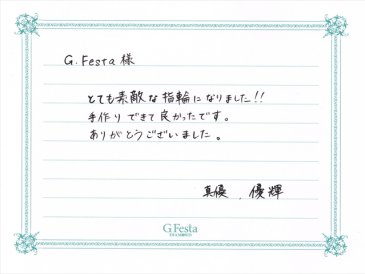 G.Festa 様
とても素敵な指輪になりました!!
手作りできて良かったです。
ありがとうございました。
真優 . 優輝
G.Festa
DIAMOND